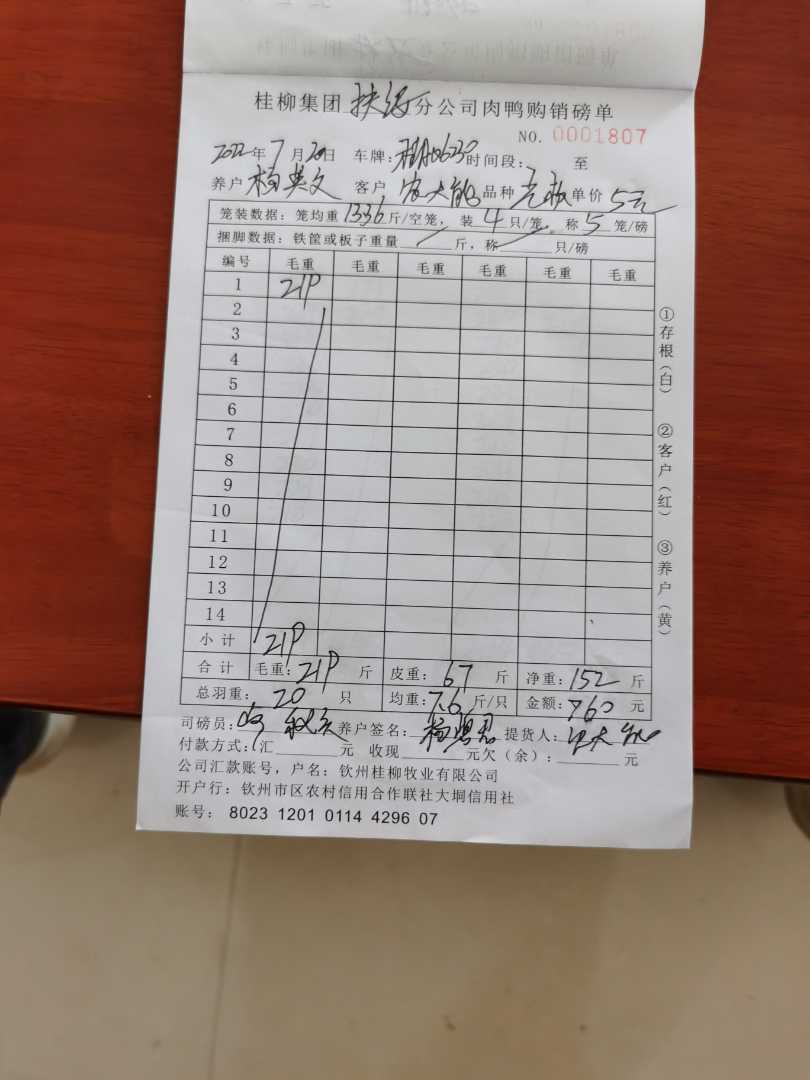 桂柳集团 扶绥 分公司肉鸭购销磅单
NO. 0001807
2022年7月20日 车牌: 时间段: 至
养户 杨英文 客户 农大能 品种 单价 5元
笼装数据: 笼均重 1336 斤/空笼, 装 4 只/笼。称 5 笼/磅
捆脚数据: 铁筐或板子重量 斤, 称 只/磅
编号 毛重 毛重 毛重 毛重 毛重 毛重
1 219
2
3
4
5
6
7
8
9
10
11
12
13
14
小计 219
合计 毛重: 219 斤 皮重: 67 斤 净重: 152 斤
总羽重: 20 只 均重: 7.6 斤/只 金额: 760 元
司磅员: 养户签名: 提货人: 农大能
付款方式: 汇 元 收现 元欠(余): 元
公司汇款账号, 户名: 钦州桂柳牧业有限公司
开户行: 钦州市区农村信用合作联社大垌信用社
账号: 8023 1201 0114 4296 07
①存根(白) ②客户(红) ③养户(黄)